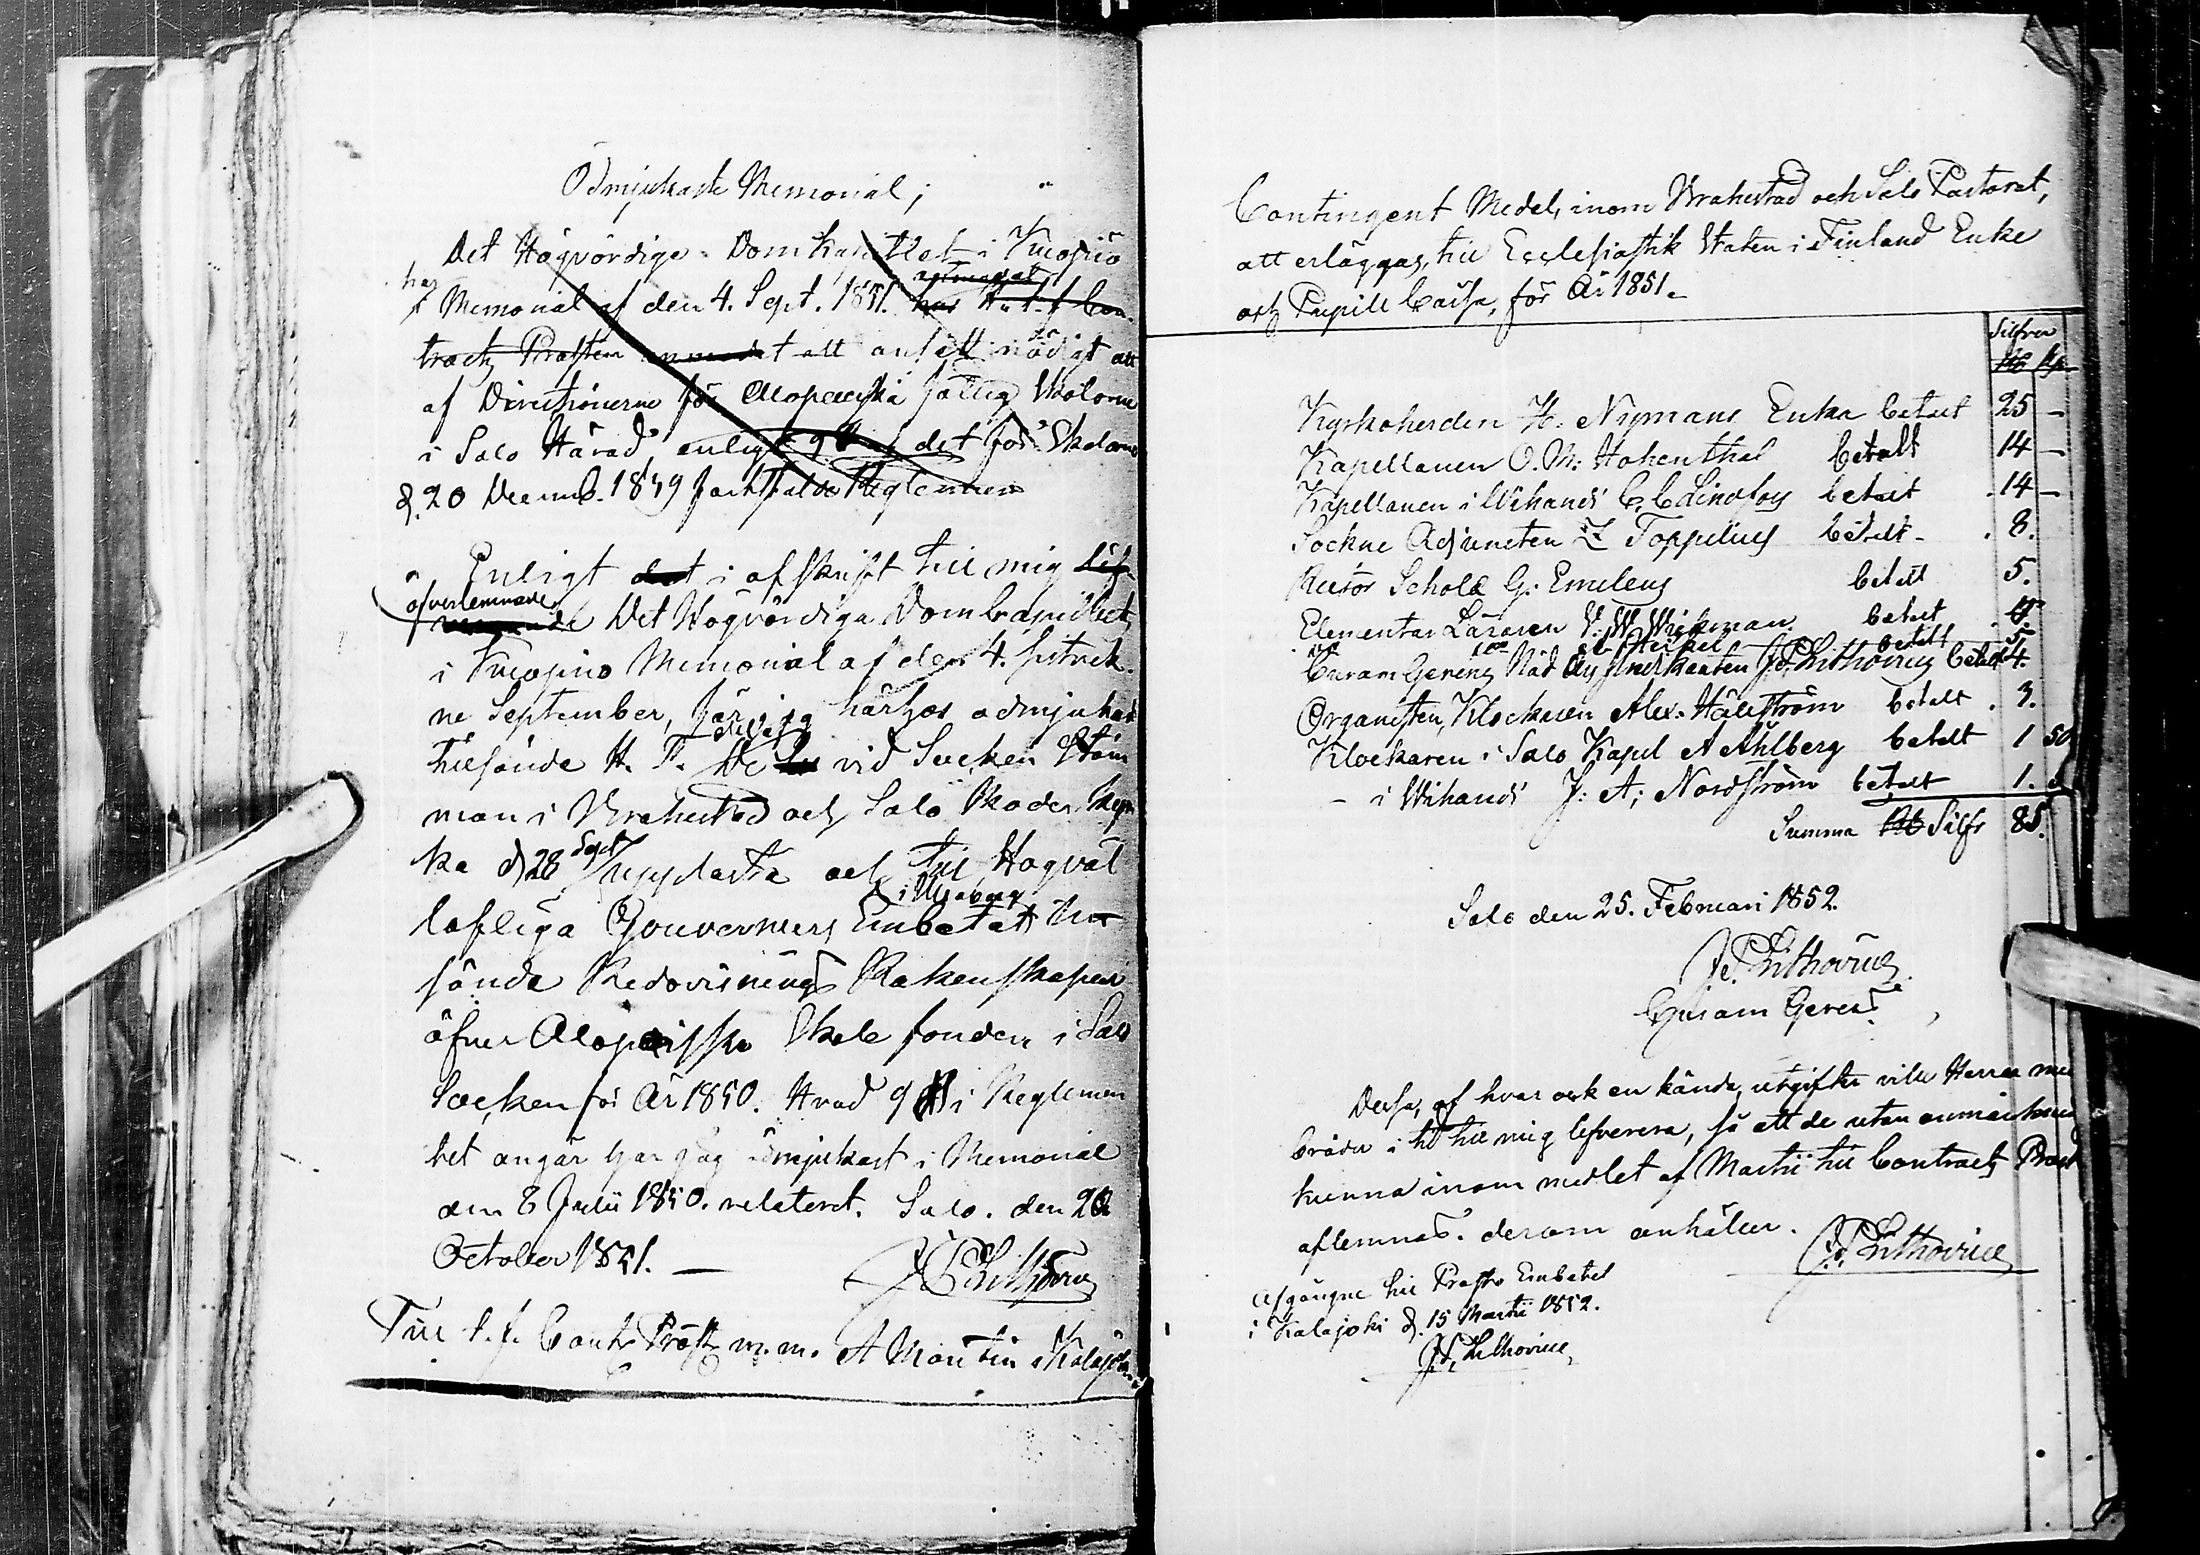 Ödmjukaste Memorial;
Det Högvördige Domkapitlet i Kuopio
har
aftmanat
f Memorial af den 4. Sept. 1851. har H. t. f. Con-
tracts Prosten anmodat att ansett nödigt att
af Directionerne för Alopæiska fattig Skolorne
i Salo Härad enligt 9 § af det för Skolorne
d. 20 Decemb. 1849 fastställda Reglemen
Enligt det i afskrift till mig
öfverlemnade
Det Högvördiga Domkapitlets
i Kuopio Memorial af den 4. sistvek-
ne September, får jag härhos ödmjukast
tillsända H. T. De vid Socken Stäm
man i Brahestad och Salo Moder Kyr
ka d. 28 Sept. upplästa och till Högväl
i Uleåborg
lofliga Gouverneurs Embetet in-
sända Redovisnings Räkenskaper
öfver Alopæiska Skole fonden i Salo
Socken för År 1850. Hvad 9 § i Reglemen
tet angår har jag ödmjukast i Memorial
den 8 Julii 1850. relaterat. Salo. den 20
October 1851. —
J P Lithovius
Till t. f. Contr. Prosten m.m. A Montin i Kalajoki
Contingent Medel, inom Brahestad och Salo Pastorat,
att erläggas, till Ecclesiastik Staten i Finland Enke
och Pupill Cassa, för År 1851.
Silfver
Rb Kp.
Kyrkoherden H. Nymans Enka betalt 25 —
Kapellanen O. M: Hohenthal betalt 14 —
Kapellanen i Wihandi C. C Lindfors betalt 14 —
Sockne Adjuncten Z Toppelius betalt 8.
Rector Scholæ G: Emeleus betalt 5.
Elementar Läraren V: W Wickman betalt
betalt 5
Curam Gerens Nåd År Predikanten J. P. Lithovius betalt 4.
Organisten, Klockaren Alex. Hällström betalt 3.
Klockaren i Salo Kapel A Ahlberg betalt 1 50
— i Wihandi J: A; Nordström betalt 1.
Summa Rb Silfr 85.
Salo den 25. Februari 1852.
J. P. Lithovius
Curam Gerens
Dessa, af hvar och en kända utgifter ville Herrar med
bråda i tid till mig lefverera, så att de utan anmärkning
kunna inom medlet af Martii till Contracts Prost
aflemnas. derom anhåller. J. P. Lithovius
Afgångne till Prosts Embetet
i Kalajoki d. 15 Martii 1852.
J. P. Lithovius